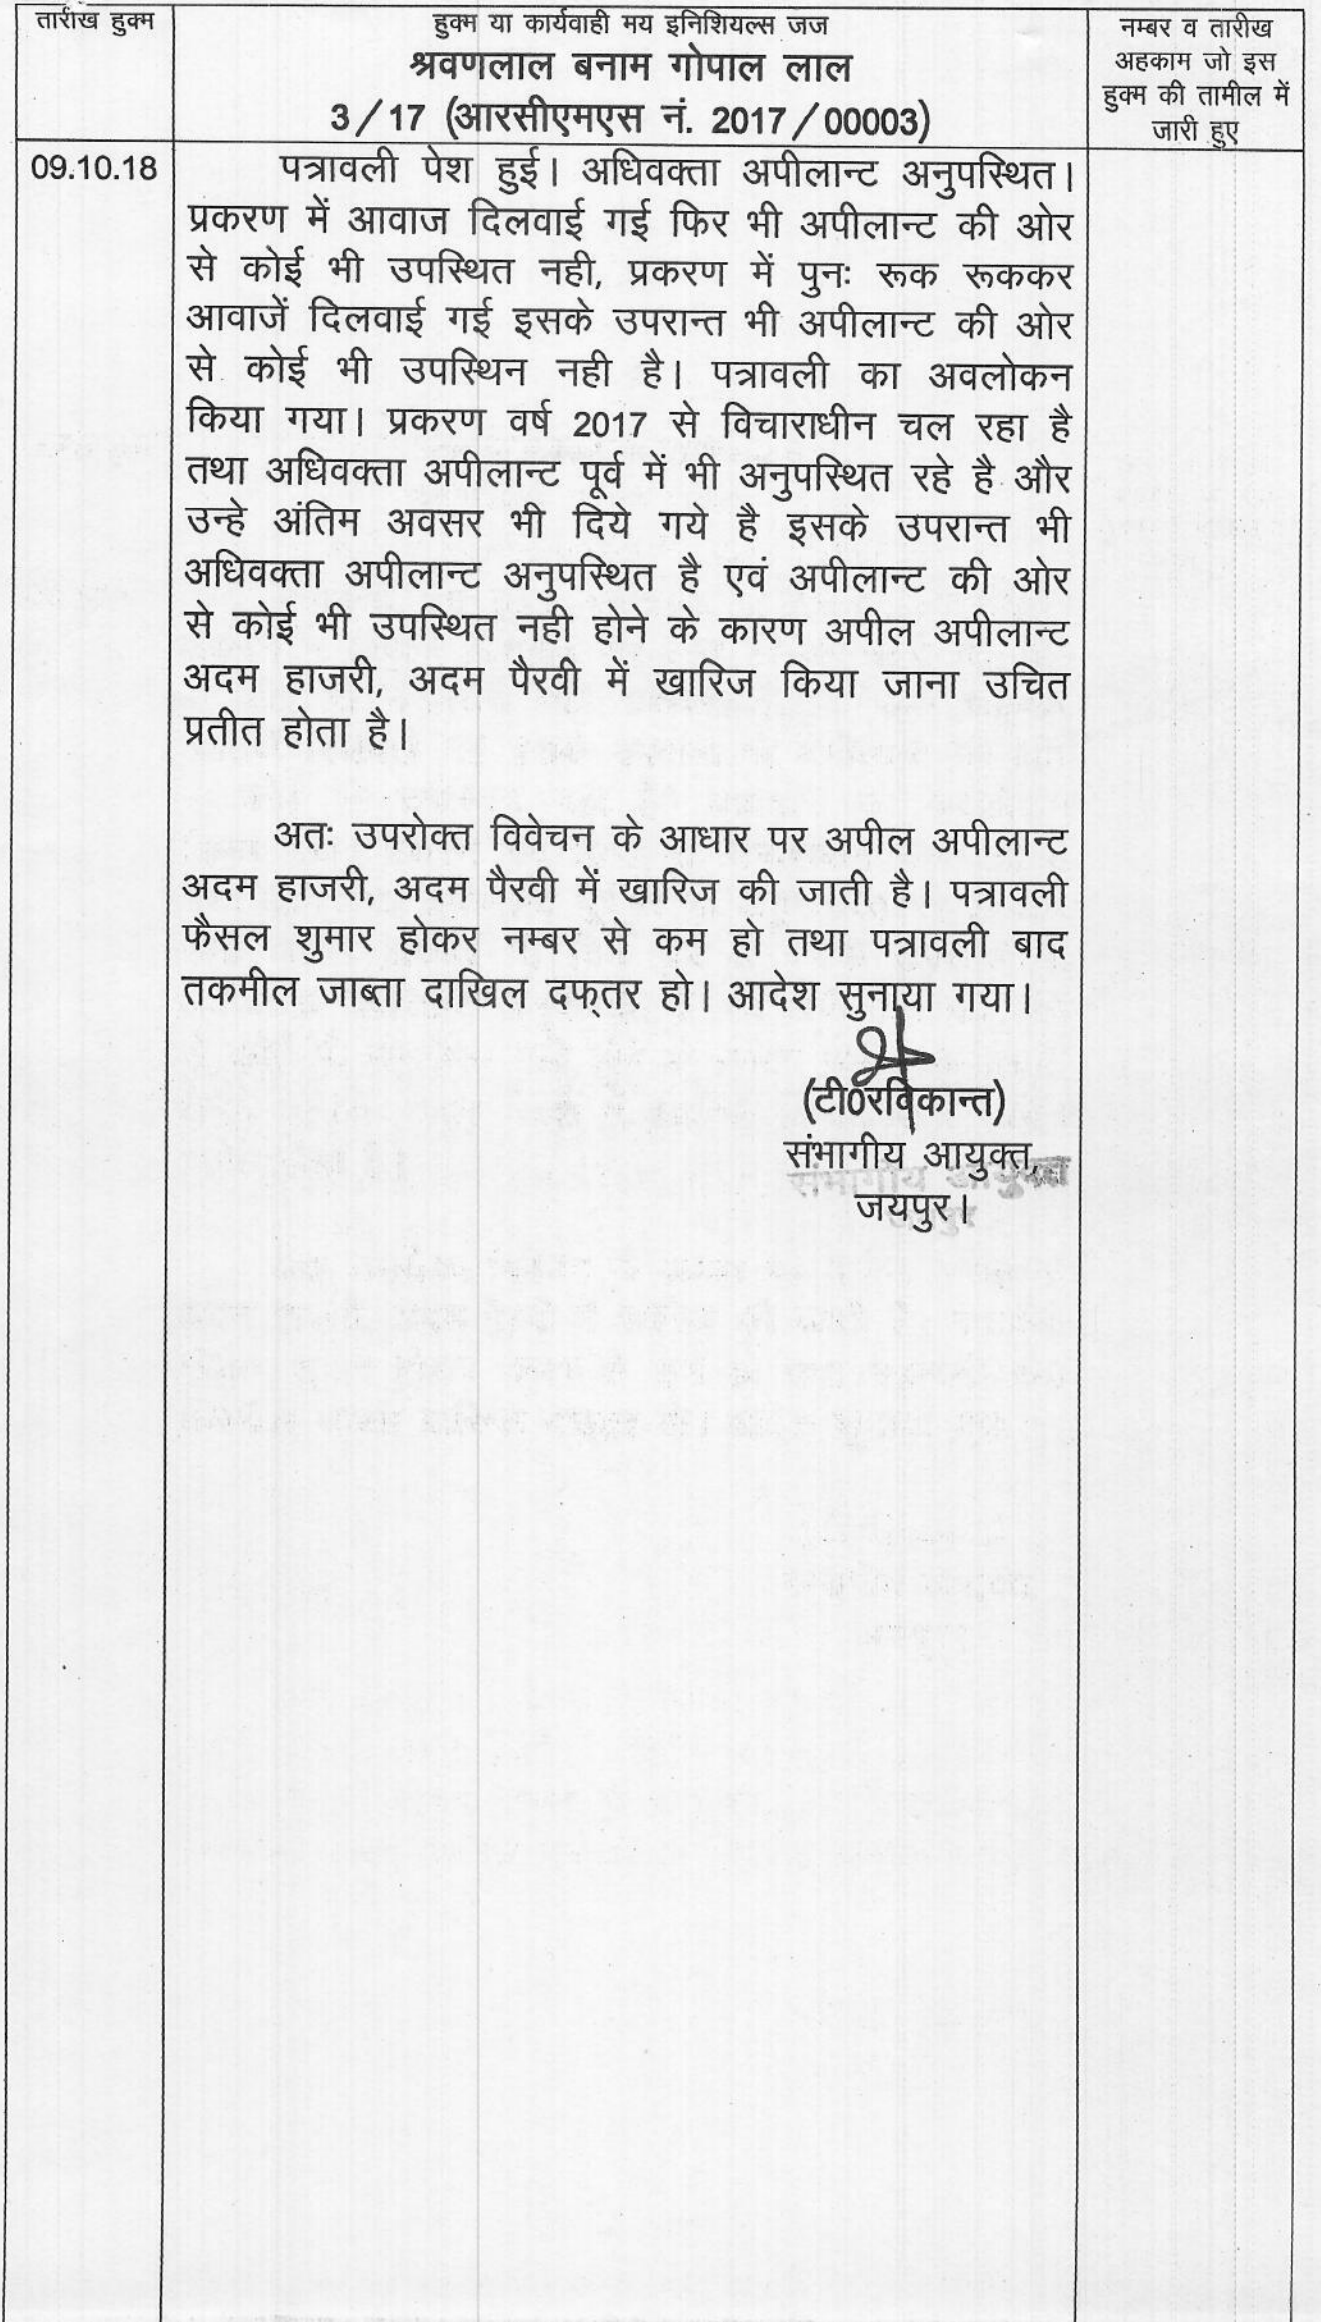 तारीख हुक्म
हुक्म या कार्यवाही मय इनिशियल्स जज
श्रवणलाल बनाम गोपाल लाल
3/17 (आरसीएमएस नं. 2017/00003)
नम्बर व तारीख
अहकाम जो इस
हुक्म की तामील में
जारी हुए
09.10.18
पत्रावली पेश हुई। अधिवक्ता अपीलान्ट अनुपस्थित।
प्रकरण में आवाज दिलवाई गई फिर भी अपीलान्ट की ओर
से कोई भी उपस्थित नही, प्रकरण में पुनः रूक रूककर
आवाजें दिलवाई गई इसके उपरान्त भी अपीलान्ट की ओर
से कोई भी उपस्थिन नही है। पत्रावली का अवलोकन
किया गया। प्रकरण वर्ष 2017 से विचाराधीन चल रहा है
तथा अधिवक्ता अपीलान्ट पूर्व में भी अनुपस्थित रहे है और
उन्हे अंतिम अवसर भी दिये गये है इसके उपरान्त भी
अधिवक्ता अपीलान्ट अनुपस्थित है एवं अपीलान्ट की ओर
से कोई भी उपस्थित नही होने के कारण अपील अपीलान्ट
अदम हाजरी, अदम पैरवी में खारिज किया जाना उचित
प्रतीत होता है।
अतः उपरोक्त विवेचन के आधार पर अपील अपीलान्ट
अदम हाजरी, अदम पैरवी में खारिज की जाती है। पत्रावली
फैसल शुमार होकर नम्बर से कम हो तथा पत्रावली बाद
तकमील जाब्ता दाखिल दफ्तर हो। आदेश सुनाया गया।
(टी0रविकान्त)
संभागीय आयुक्त,
संभागीय आयुक्त
जयपुर।